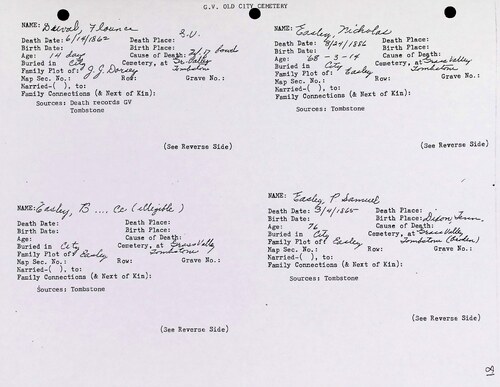 G.V. OLD CITY CEMETERY
NAME: Duval, Florence
Death Date: 6/14/1862 Death Place: G.V.
Birth Date: Birth Place:
Age: 14 days Cause of Death:
Buried in City Cemetery, at Gr Valley
Family Plot of: J.J. Dorsey Tombstone
Map Sec. No.: Row:
Married-( ), to:
Family Connections (& Next of Kin):
Sources: Death records GV
Tombstone
(See Reverse Side)
NAME: Easley, Nicholas
Death Date: 8/24/1886 Death Place:
Birth Date: Birth Place:
Age: 68-3-14 Cause of Death:
Buried in City Cemetery, at Grass Valley
Family Plot of: Easley Tombstone
Map Sec. No.: Row: Grave No.:
Married-( ), to:
Family Connections (& Next of Kin):
Sources:
Tombstone
(See Reverse Side)
NAME: Easley, B .... Ce (illegible)
Death Date: Death Place:
Birth Date: Birth Place:
Age: Cause of Death:
Buried in City Cemetery, at Grass Valley
Family Plot of Easley Tombstone
Map Sec. No.: Row: Grave No.:
Married-( ), to:
Family Connections (& Next of Kin):
Sources: Tombstone
(See Reverse Side)
NAME: Easley, P Samuel
Death Date: 3/4/1865 Death Place:
Birth Date: Birth Place: Dixon Tenn.
Age: 76 Cause of Death:
Buried in City Cemetery, at Grass Valley
Family Plot of Easley Tombstone (broken)
Map Sec. No.: Row: Grave No.:
Married-( ), to:
Family Connections (& Next of Kin):
Sources: Tombstone
(See Reverse Side)
18